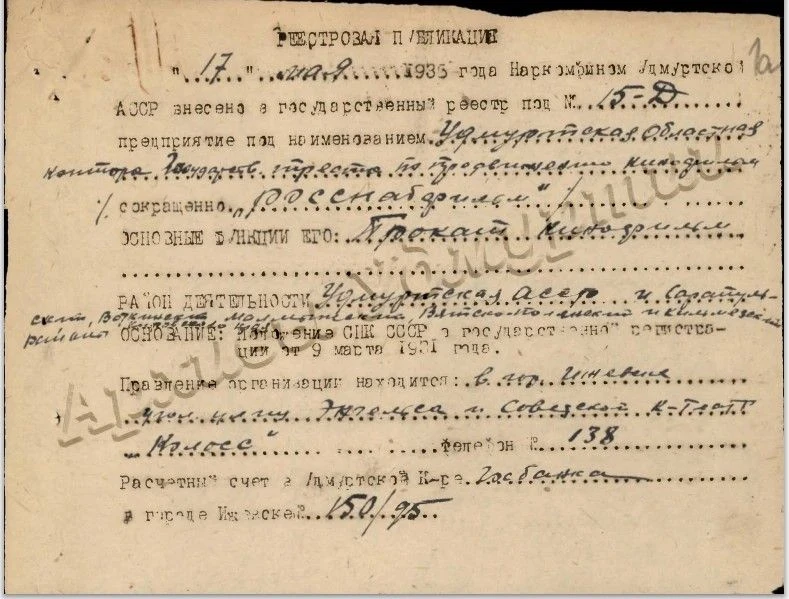 РЕЕСТРОВАЯ ПУБЛИКАЦИЯ
1а
"17" мая 1936 года Наркомфином Удмуртской
АССР внесено в государственный реестр под № 15-Д
предприятие под наименованием Удмуртская областная
контора Государств. треста по продвижению кинофильм
/ сокращенно "РОССНАБФИЛЬМ" /
ОСНОВНЫЕ ФУНКЦИИ ЕГО: Прокат кинофильм
РАЙОН ДЕЯТЕЛЬНОСТИ Удмуртская АССР и Сарапуль-
ский, Воткинский, Малмыжский, Вятско-Полянский и Кильмезский
районы
ОСНОВАНИЕ: Положение СНК СССР о государственной регистра-
ции от 9 марта 1931 года.
Правление организации находится: в гор. Ижевске
угол улиц Энгельса и Советской К-Театр
"Колосс" телефон № 138
Расчетный счет в Удмуртской К-ре Госбанка
в городе Ижевске № 150/95
Архивы Удмуртии